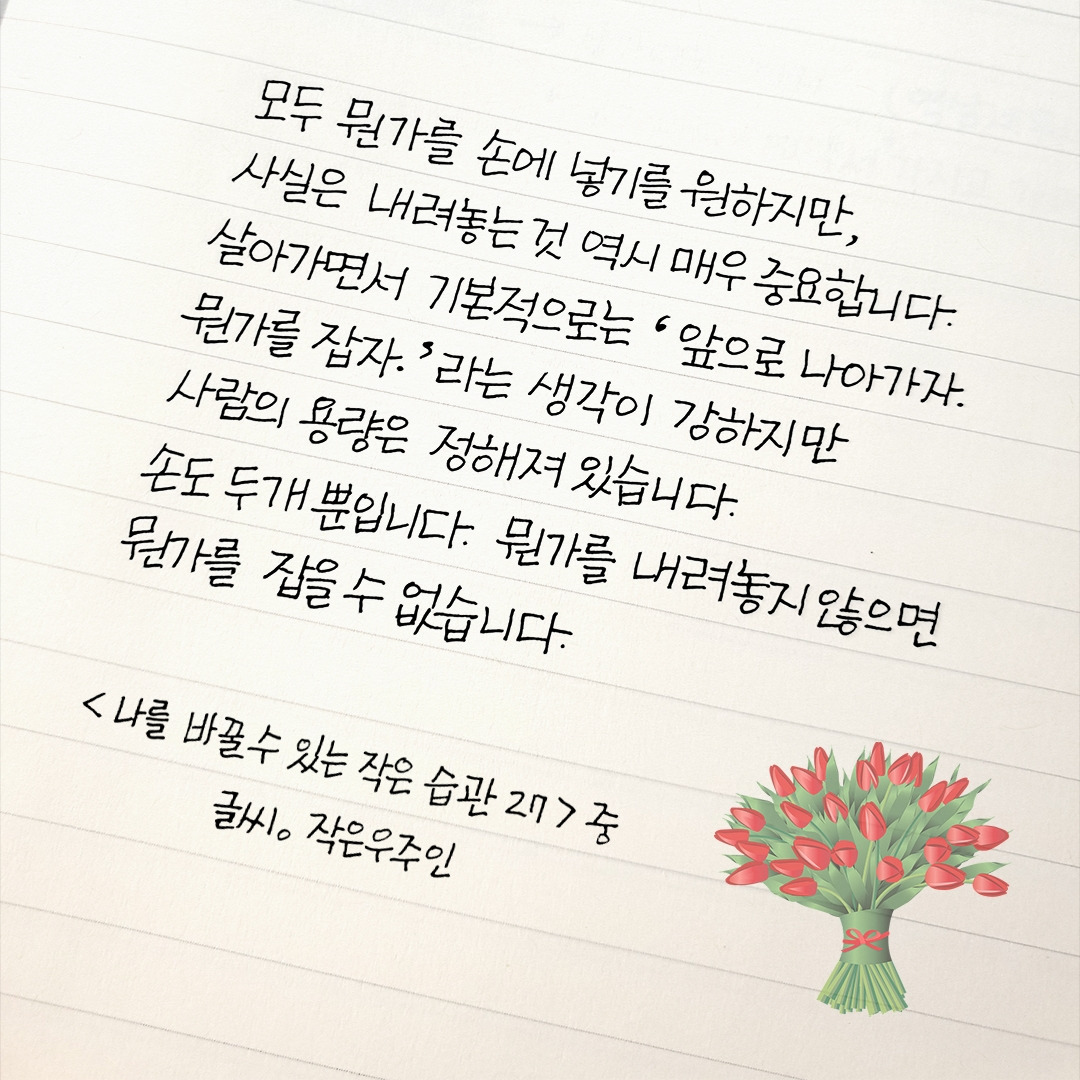 모두 뭔가를 손에 넣기를 원하지만,
사실은 내려놓는 것 역시 매우 중요합니다.
살아가면서 기본적으로는 '앞으로 나아가자.
뭔가를 잡자.'라는 생각이 강하지만
사람의 용량은 정해져 있습니다.
손도 두개 뿐입니다. 뭔가를 내려놓지 않으면
뭔가를 잡을 수 없습니다.
<나를 바꿀 수 있는 작은 습관 27> 중
글씨。 작은우주인